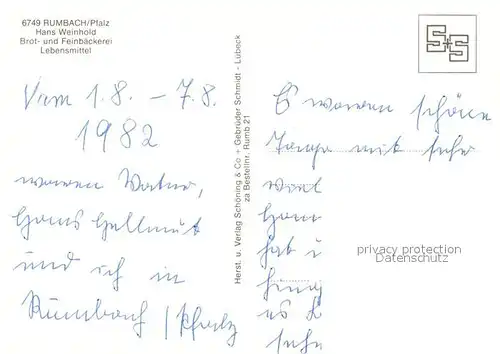 6749 RUMBACH/Pfalz
Hans Weinhold
Brot- und Feinbäckerei
Lebensmittel
Vom 1.8. – 7.8.
1982
waren
Hans Hellmut
und ich in
Rumbach / Pfalz
Herst. u. Verlag Schöning & Co + Gebrüder Schmidt - Lübeck
za Bestellnr. Rumb 21
S+S
Es waren schöne
Tage mit sehr
hat
privacy protection
Datenschutz